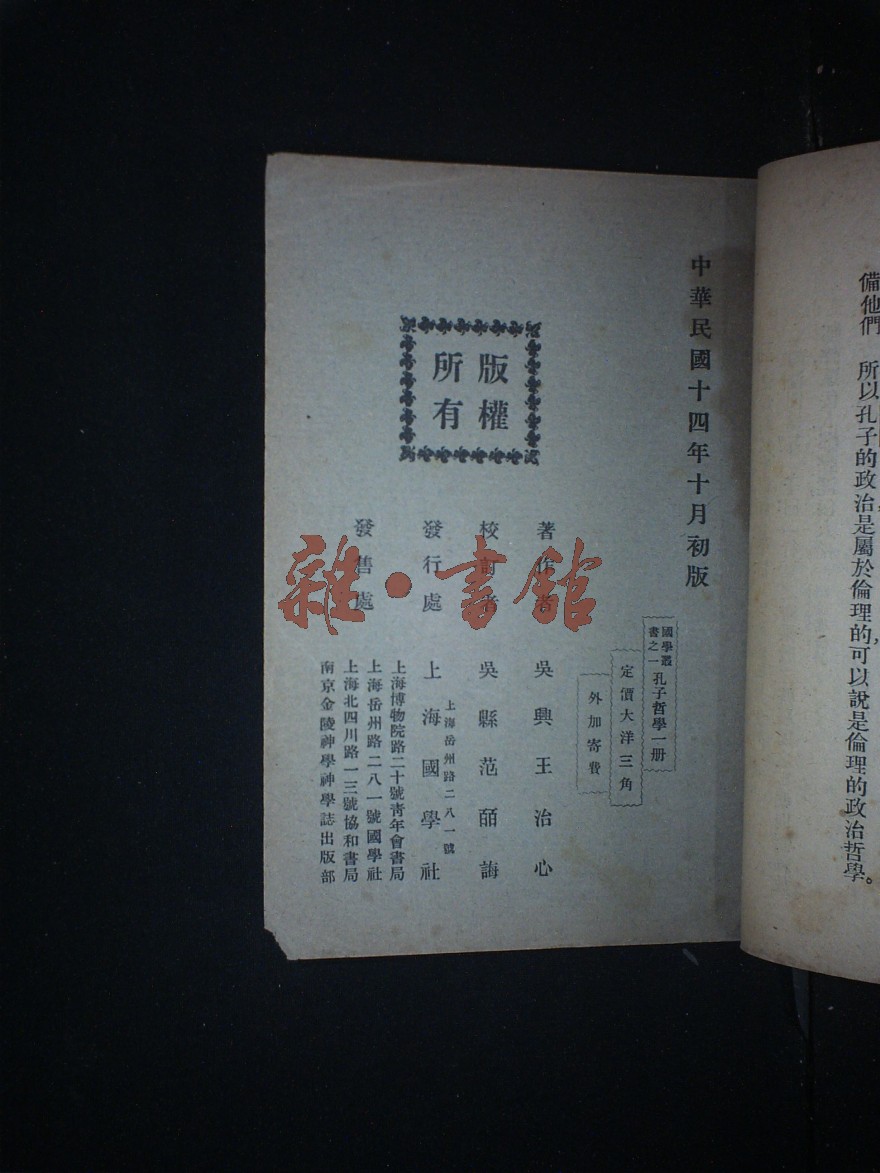 備他們 所以孔子的政治是屬於倫理的,可以說是倫理的政治哲學。
中華民國十四年十月初版
國學叢書之一 孔子哲學一册
定價大洋三角
外加寄費
版權
所有
著作者 吳興王治心
校訂者 吳縣范皕誨
發行處 上海國學社
上海岳州路二八一號
發售處
上海博物院路二十號靑年會書局
上海岳州路二八一號國學社
上海北四川路一三號協和書局
南京金陵神學神學誌出版部
雜·書館